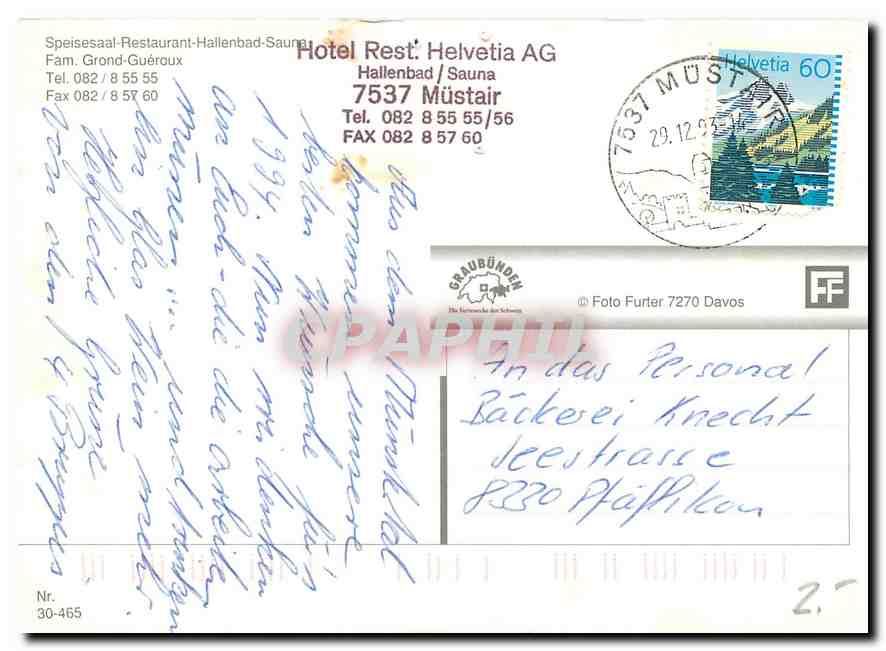 Speisesaal-Restaurant-Hallenbad-Sauna
Fam. Grond-Guéroux
Tel. 082 / 8 55 55
Fax 082 / 8 57 60
Hotel Rest. Helvetia AG
Hallenbad/Sauna
7537 Müstair
Tel. 082 8 55 55/56
FAX 082 8 57 60
Helvetia 60
7537 MÜSTAIR
29.12.93
Aus dem Münstertal
kommen unsere
besten Wünsche für's
1994. Nun wir denken
an Euch - die die arbeiten
müssen!! und trinken
ein Glas Wein mehr.
Herzliche Grüsse
von den 4
GRAUBÜNDEN
Die Ferienecke der Schweiz
© Foto Furter 7270 Davos
FF
CPAPHIL
An das Personal
Bäckerei Knecht
Seestrasse
8330 Pfäffikon
Nr.
30-465
2.-